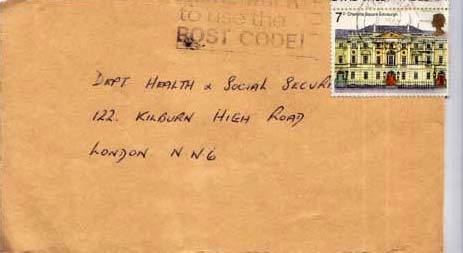 to use the
POST CODE!
7p Charlotte Square Edinburgh
DEPT HEALTH & SOCIAL SECURI
122. KILBURN HIGH ROAD
LONDON N N6